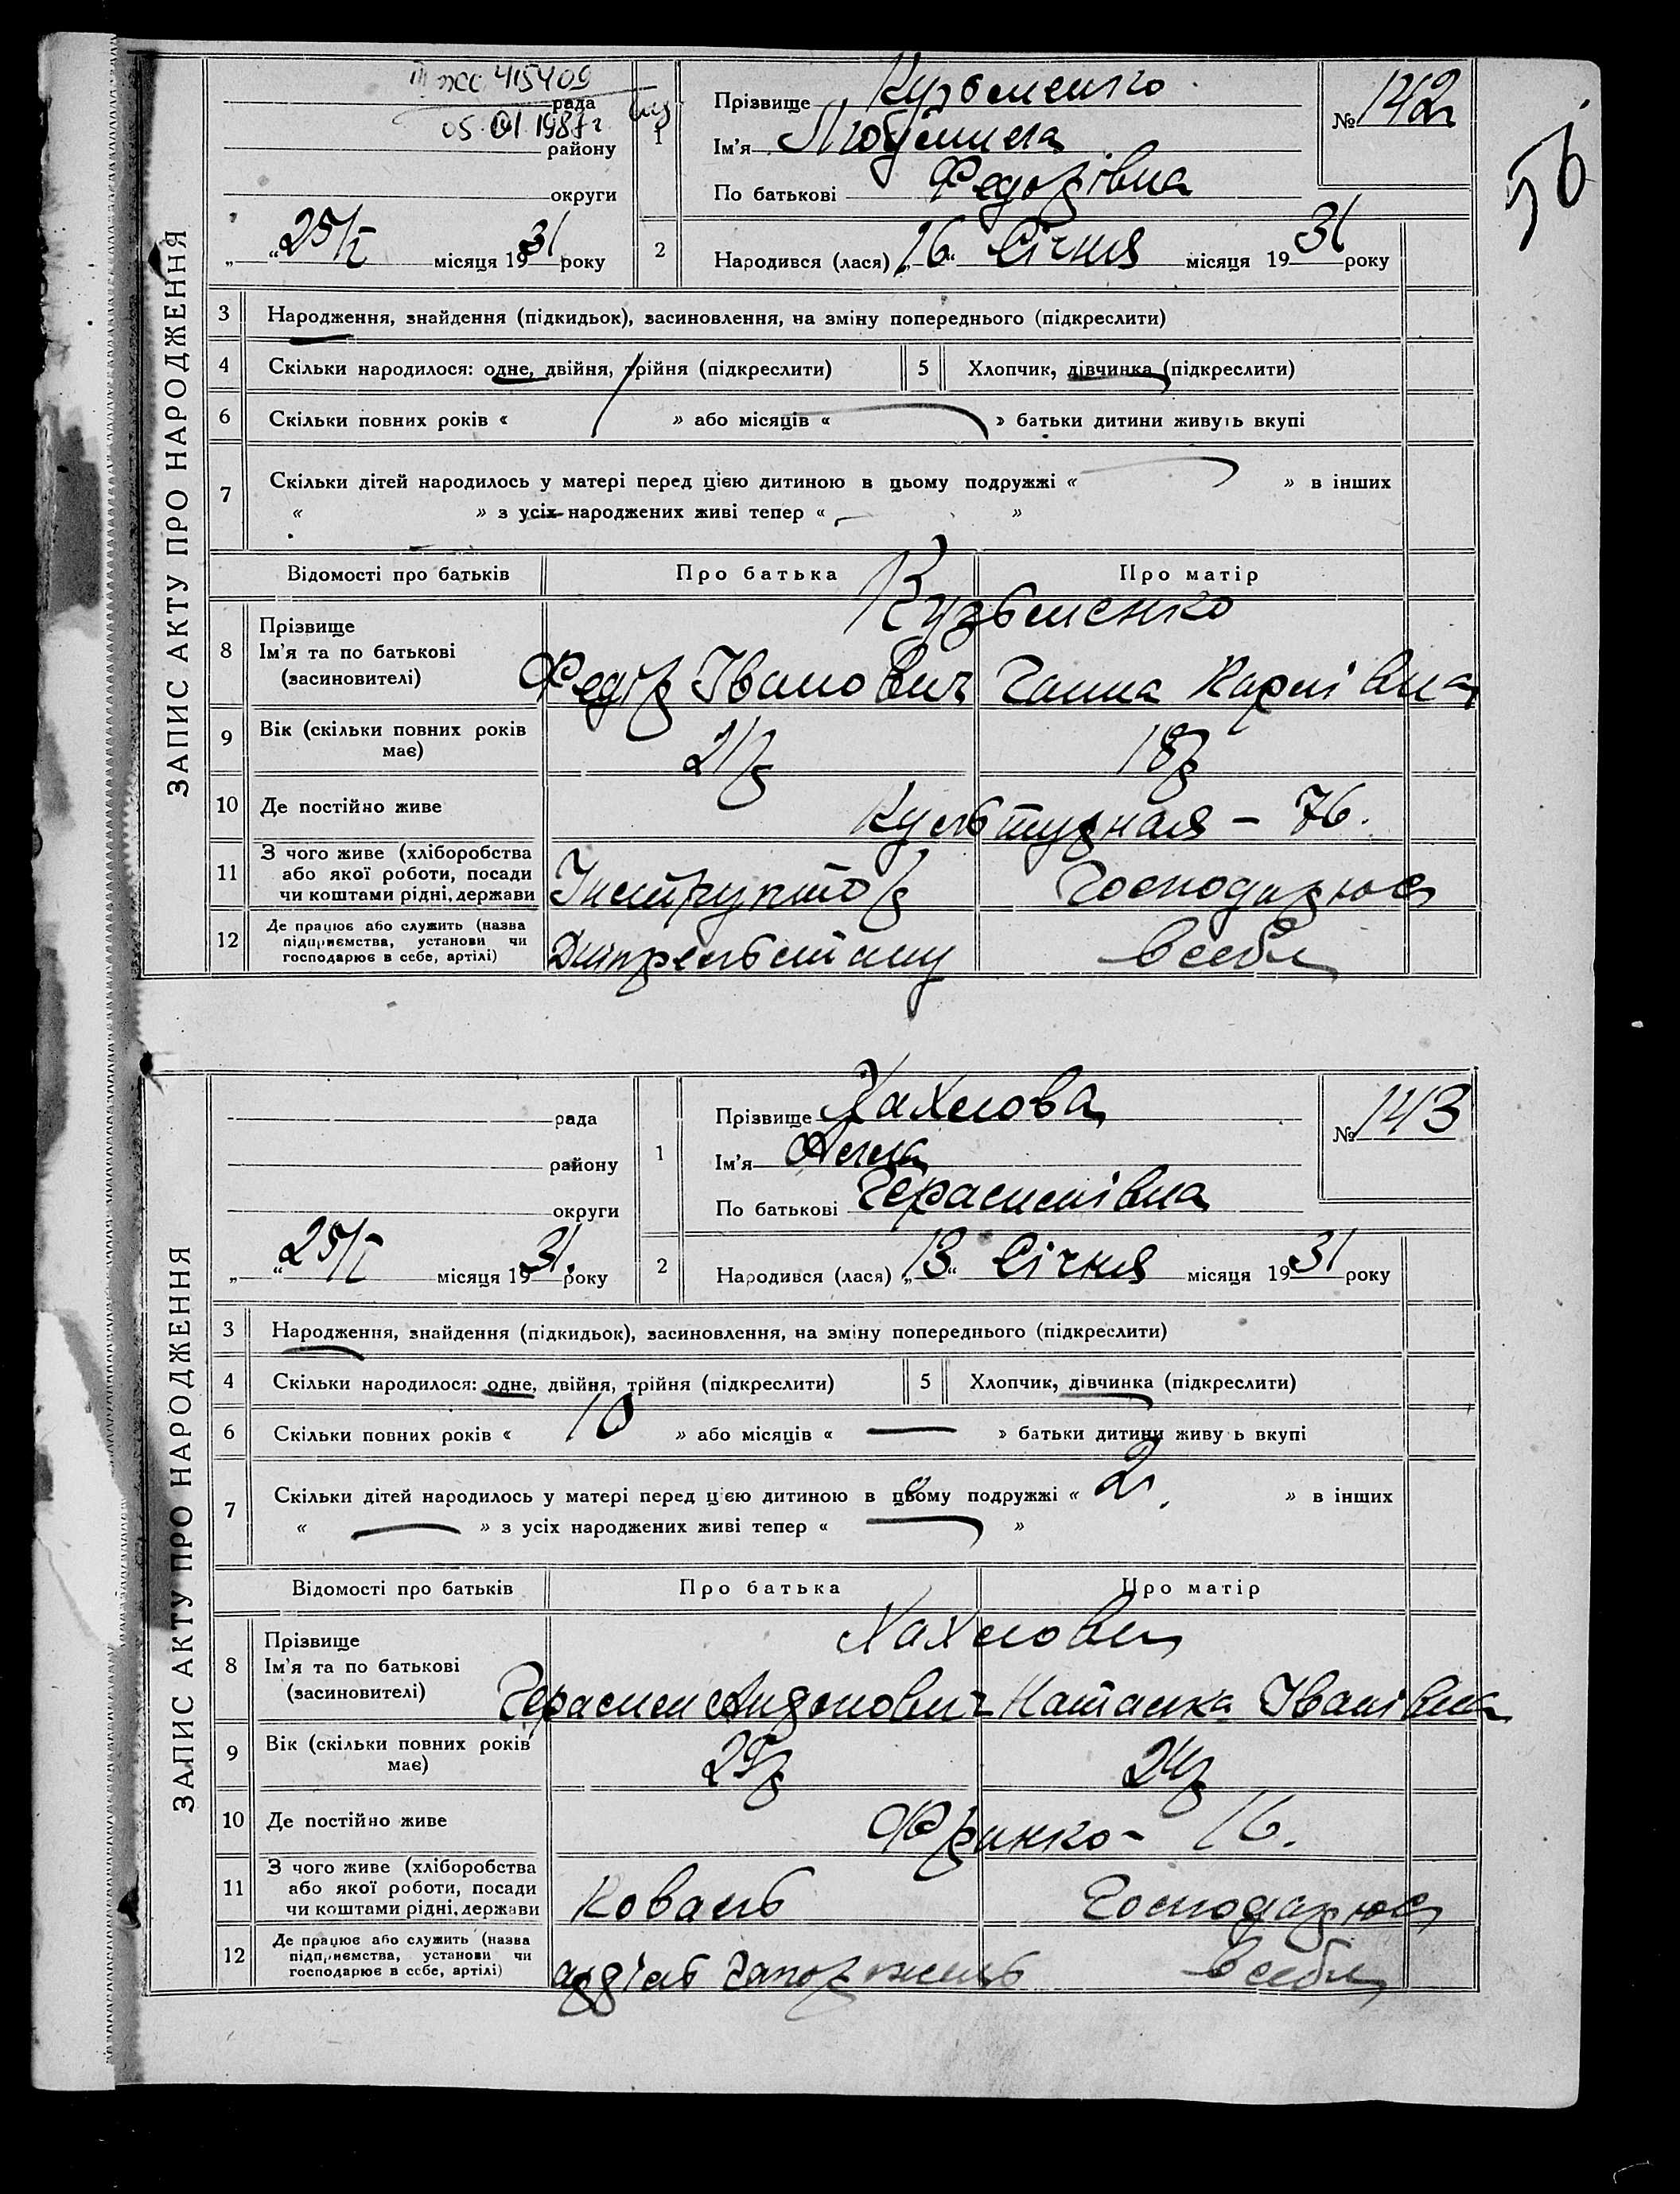 III ЖС 415409
рада
05.01.1987г
району
округи
„ “ 25/I місяця 1931 року
1
Прізвище Кузьменко
Ім'я Людмила
По батькові Федорівна
№ 142
56
2
Народився (лася) „16“ Січня місяця 1931 року
ЗАПИС АКТУ ПРО НАРОДЖЕННЯ
3 Народження, знайдення (підкидьок), засиновлення, на зміну попереднього (підкреслити)
4 Скільки народилося: одне, двійня, трійня (підкреслити) 5 Хлопчик, дівчинка (підкреслити)
6 Скільки повних років « » або місяців « » батьки дитини живуть вкупі
7 Скільки дітей народилось у матері перед цією дитиною в цьому подружжі « » в інших
« » з усіх народжених живі тепер « »
Відомості про батьків Про батька Про матір
8 Прізвище Кузьменко
Ім'я та по батькові
(засиновителі) Федір Іванович Ганна Карпівна
9 Вік (скільки повних років має) 21р 18р
10 Де постійно живе Культурная – 76.
11 З чого живе (хліборобства
або якої роботи, посади
чи коштами рідні, держави Інструктор Господарює
12 Де працює або служить (назва
підприємства, установи чи
господарює в себе, артілі) в себе
рада
району
округи
„ “ 25/I місяця 1931. року
1
Прізвище Хахлова
Ім'я Алла
По батькові Герасимівна
№ 143
2
Народився (лася) „13“ Січня місяця 1931 року
ЗАПИС АКТУ ПРО НАРОДЖЕННЯ
3 Народження, знайдення (підкидьок), засиновлення, на зміну попереднього (підкреслити)
4 Скільки народилося: одне, двійня, трійня (підкреслити) 5 Хлопчик, дівчинка (підкреслити)
6 Скільки повних років « 10 » або місяців « — » батьки дитини живу ь вкупі
7 Скільки дітей народилось у матері перед цією дитиною в цьому подружжі « 2 » в інших
« — » з усіх народжених живі тепер « — »
Відомості про батьків Про батька Про матір
8 Прізвище Хахлови
Ім'я та по батькові
(засиновителі) Герасим Наталка Іванівна
9 Вік (скільки повних років має) 29р 24р
10 Де постійно живе Франко – 16.
11 З чого живе (хліборобства
або якої роботи, посади
чи коштами рідні, держави Коваль Господарює
12 Де працює або служить (назва
підприємства, установи чи
господарює в себе, артілі) в себе